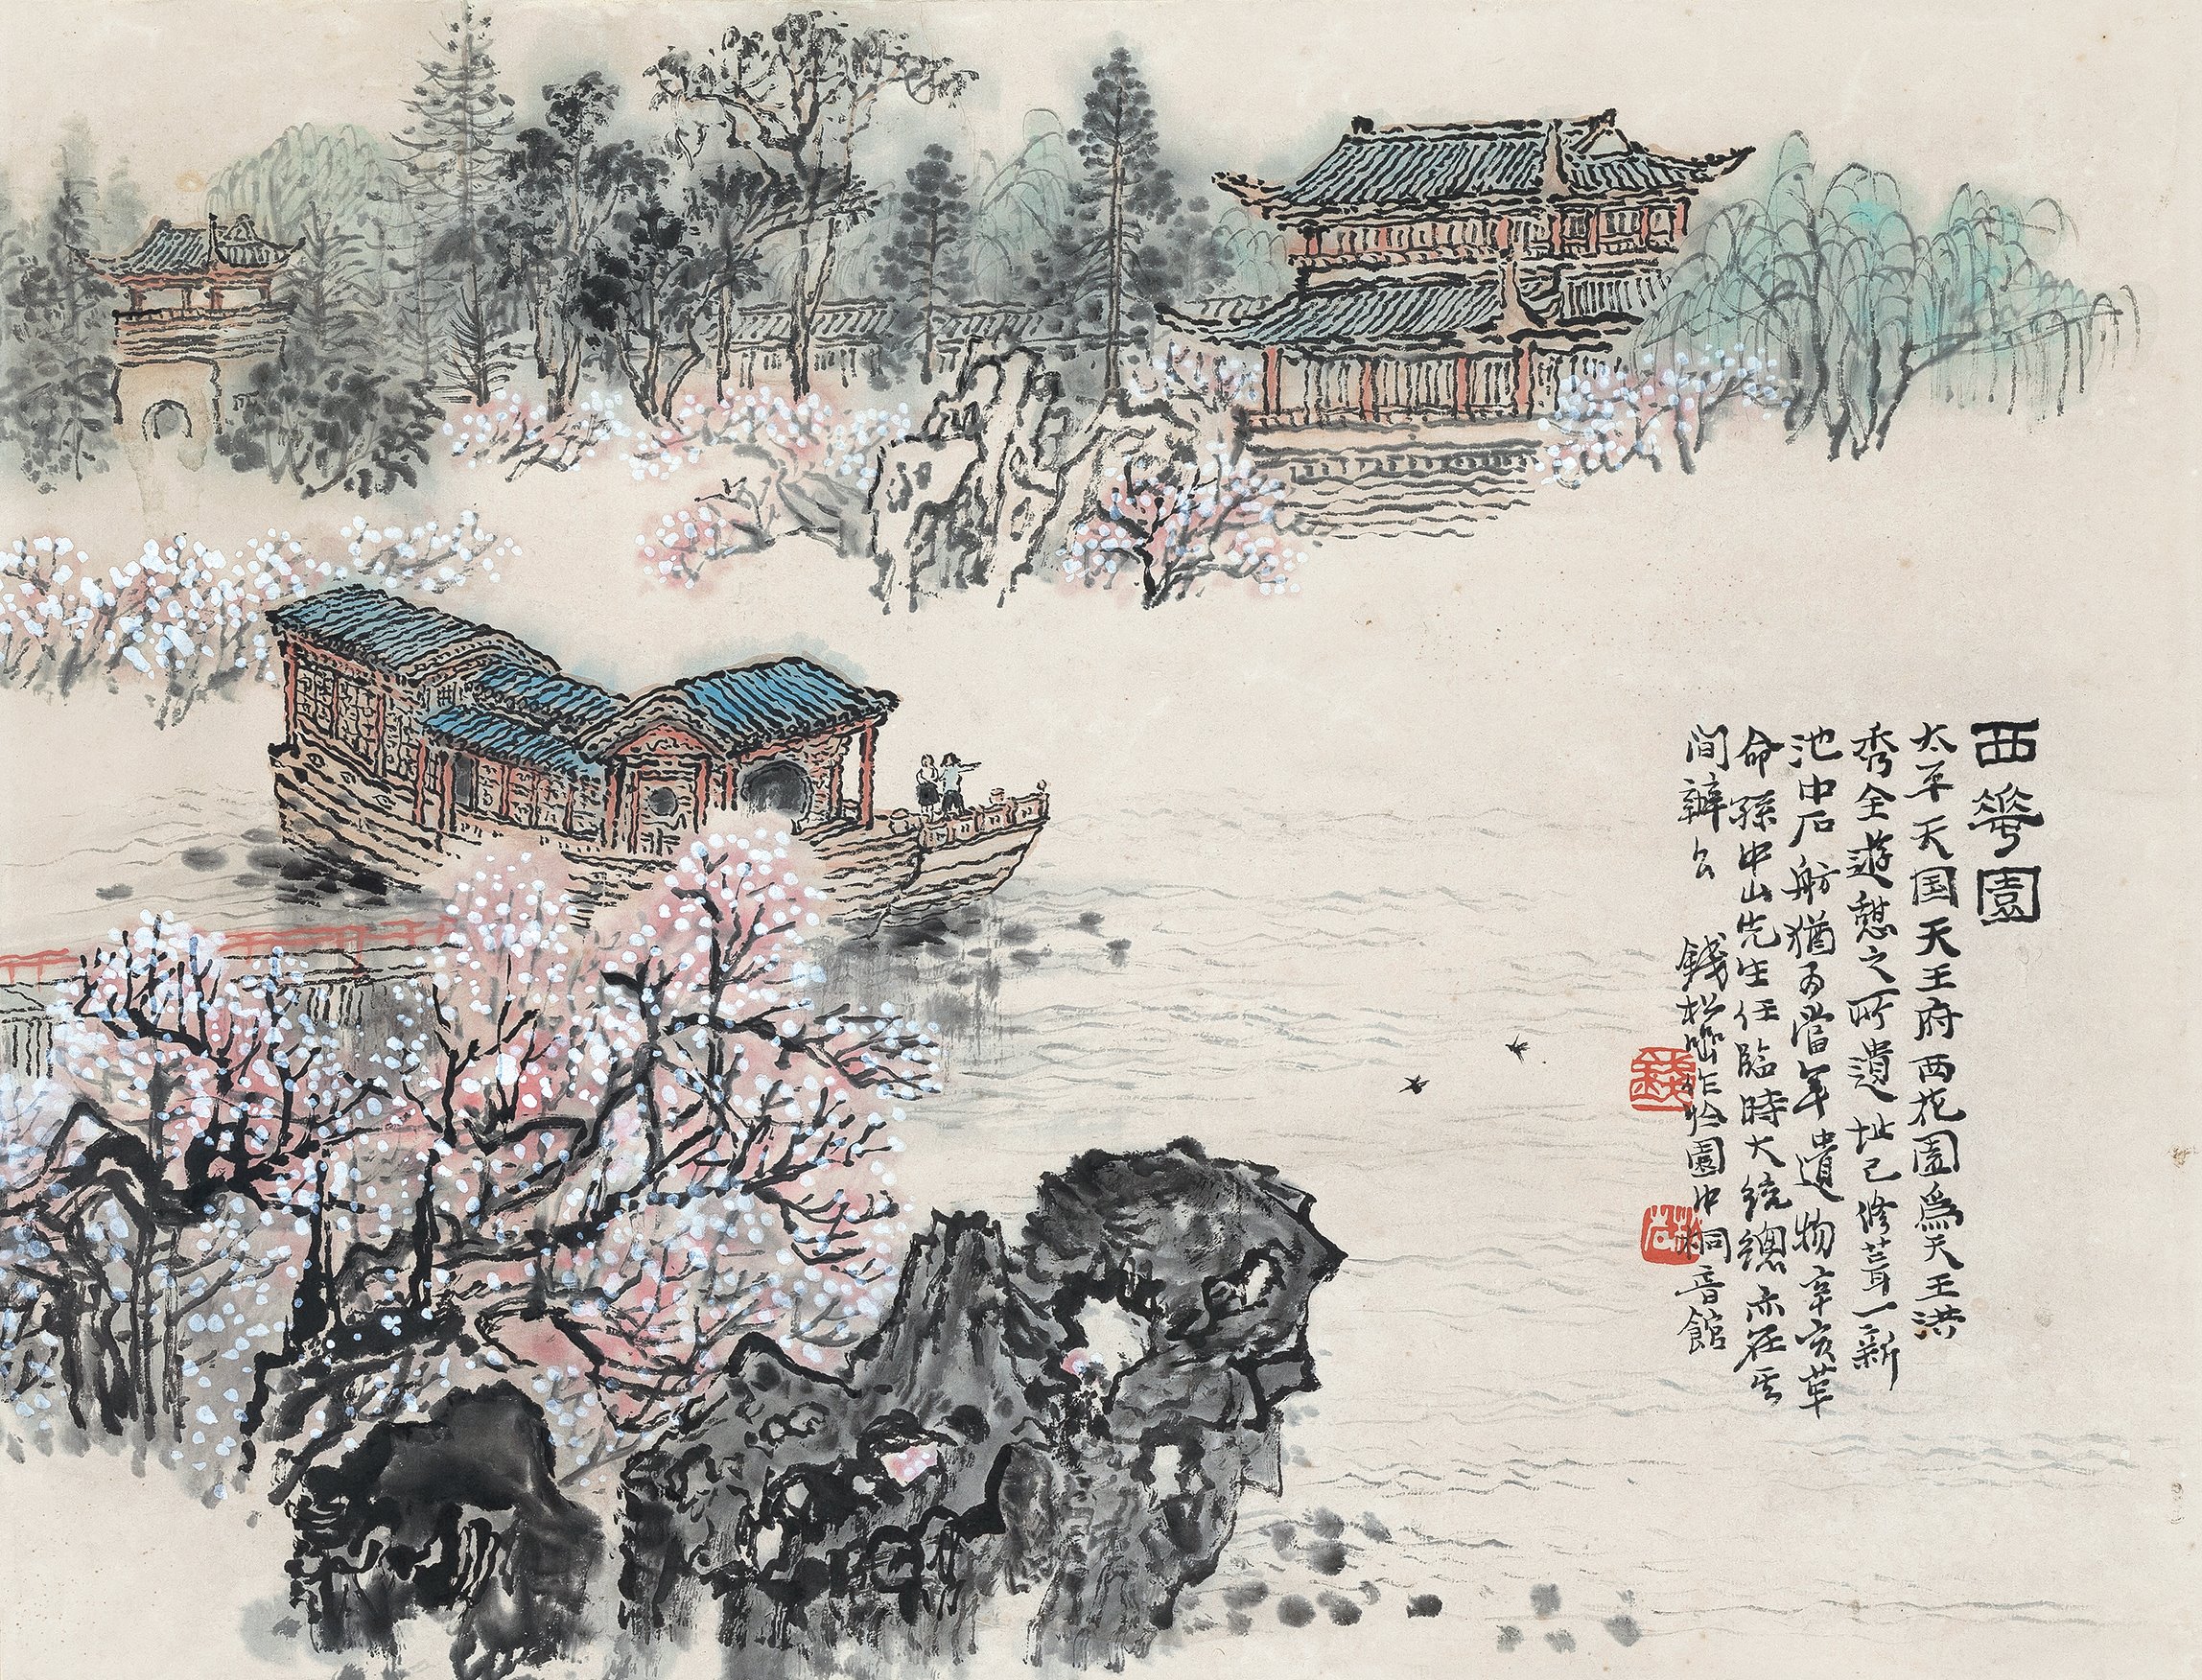 西華園
太平天国天王府西花園爲天王洪
秀全遊憩之所遺址已修葺一新
池中石舫猶为當年遺物辛亥革
命孫中山先生任臨時大統總亦在其
間辦公 錢松喦作於園中桐音館
錢